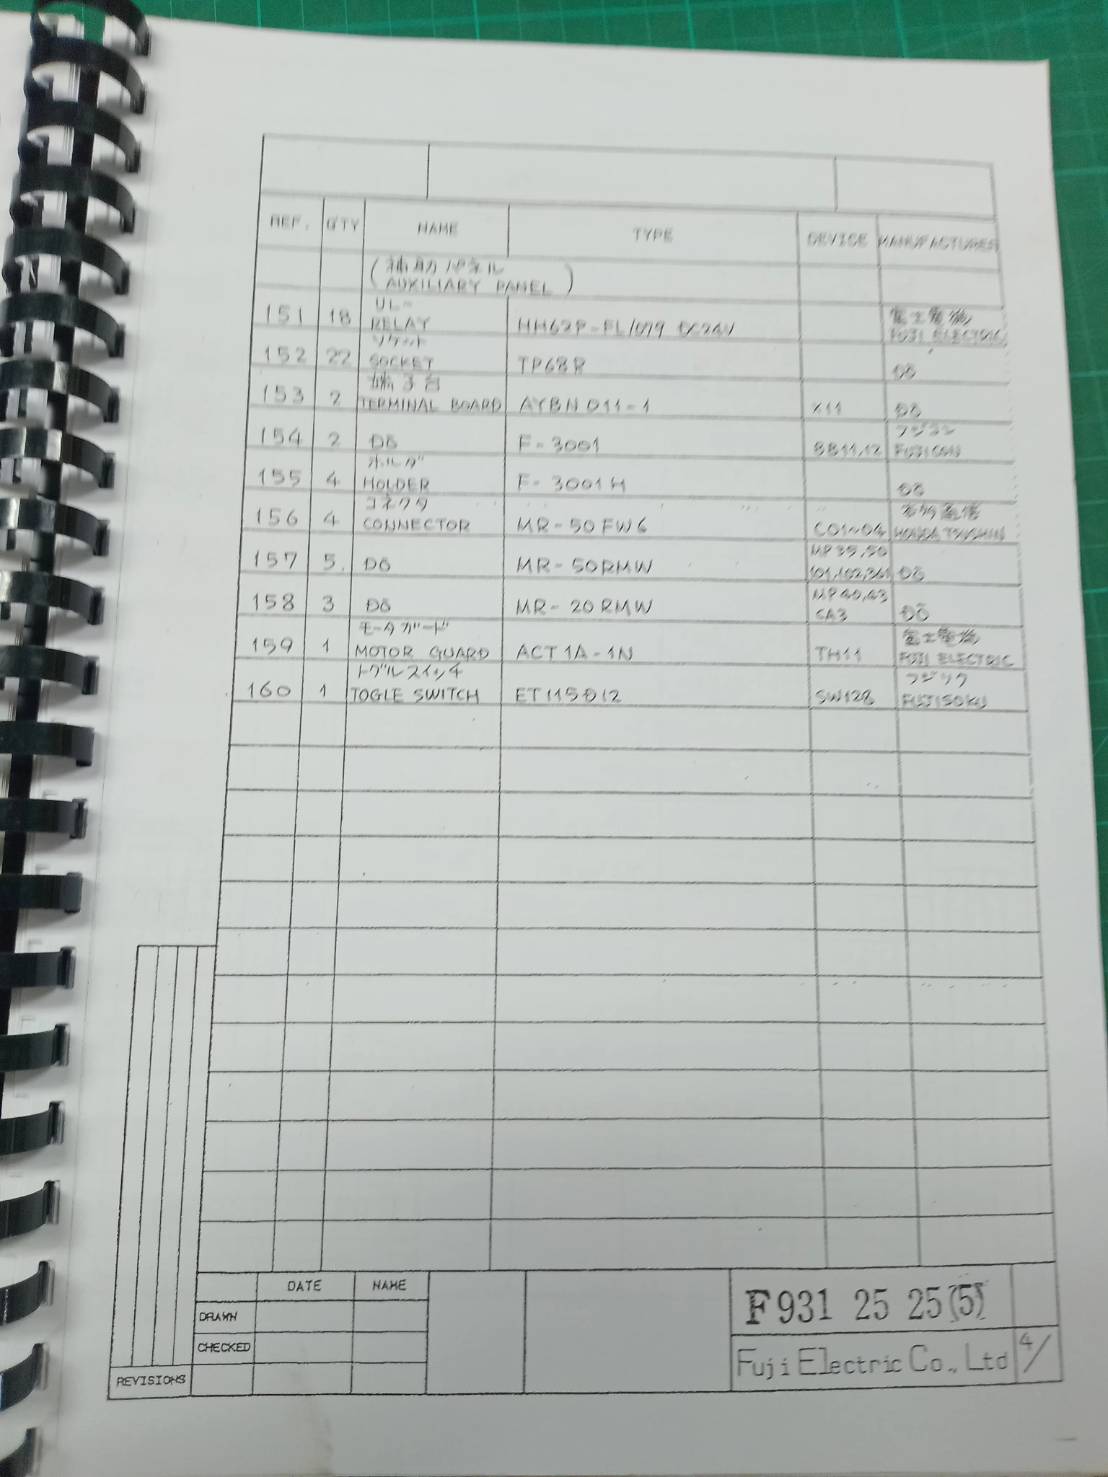 REF. Q'TY NAME TYPE DEVICE MANUFACTURER
(補助パネル
AUXILIARY PANEL)
リレー 富士電機
151 18 RELAY HH62P-FL/079 DC24V FUJI ELECTRIC
ソケット
152 22 SOCKET TP68R DO
端子台
153 2 TERMINAL BOARD AYBN011-1 X11 DO
フジコン
154 2 DO F-3001 BB11,12 FUJICON
ホルダ
155 4 HOLDER F-3001H DO
コネクタ 本多通信
156 4 CONNECTOR MR-50FW6 C01~04 HONDA TSUSHIN
MP39,50
157 5. DO MR-50RMW 101,102,361 DO
MP40,43
158 3 DO MR-20RMW CA3 DO
モータガード 富士電機
159 1 MOTOR GUARD ACT1A-1N TH11 FUJI ELECTRIC
トグルスイッチ フジソク
160 1 TOGLE SWITCH ET115D12 SW128 FUJISOKU
DATE NAME
DRAWN
CHECKED
REVISIONS
F931 25 25(5)
Fuji Electric Co., Ltd 4/